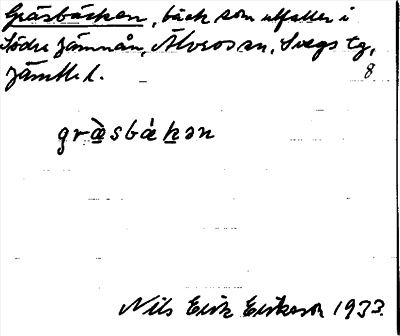 Gräsbäcken, bäck som utfaller i
Södra Jämnån, Älvros sn, Svegs tg,
Jämtl. l.
8
gràsbákən
Nils Eric Eriksson 1933.